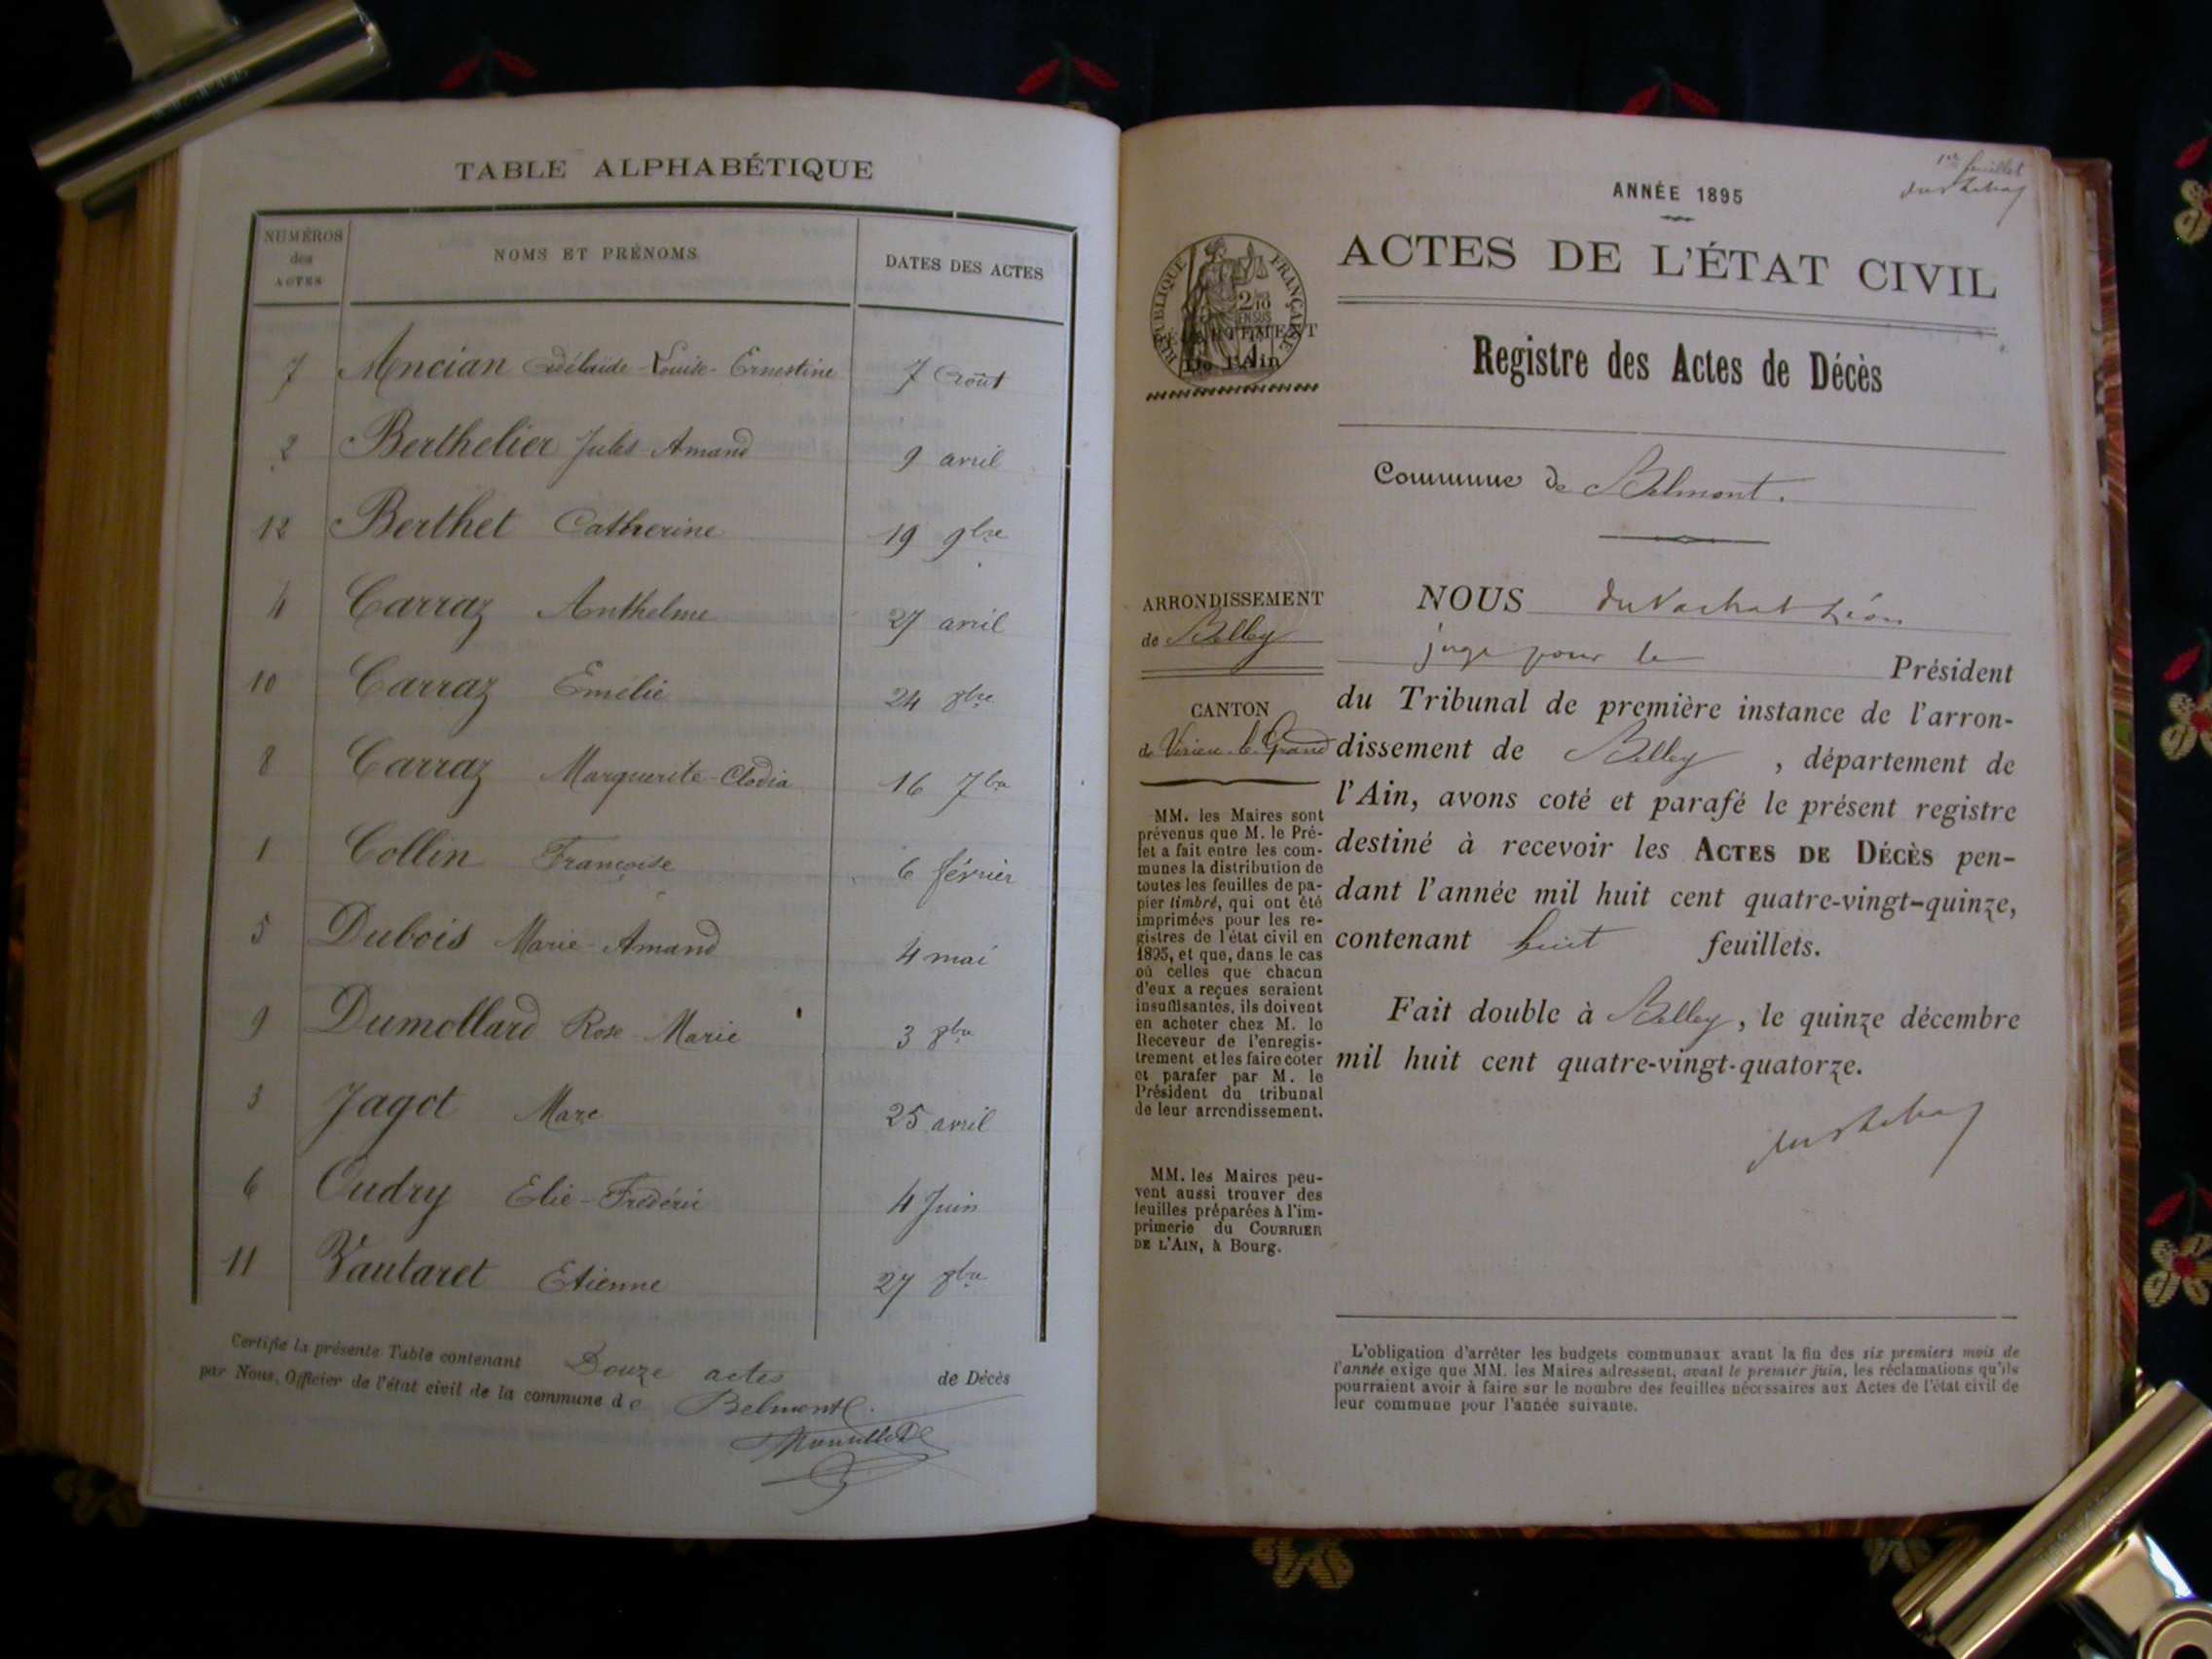 TABLE ALPHABÉTIQUE
NUMÉROS
des
ACTES
NOMS ET PRÉNOMS
DATES DES ACTES
7 Ancian Adélaïde-Louise-Ernestine 7 Août
2 Berthelier Jules Amand 9 avril
12 Berthet Catherine 19 9bre
4 Carraz Anthelme 27 avril
10 Carraz Emélie 24 8bre
8 Carraz Marguerite-Clodia 16 7bre
1 Collin Françoise 6 février
5 Dubois Marie-Amand 4 mai
9 Dumollard Rose Marie 3 8bre
3 Jagot Marc 25 avril
6 Oudry Elie-Frédéric 4 Juin
11 Vautaret Etienne 27 8bre
Certifié la présente Table contenant Douze actes de Décès
par Nous, Officier de l'état civil de la commune de Belmont.
1er feuillet
ANNÉE 1895
ACTES DE L'ÉTAT CIVIL
RÉPUBLIQUE FRANÇAISE
DÉPARTEMENT
De l'Ain
Registre des Actes de Décès
Commune de Belmont.
ARRONDISSEMENT
de Belley
CANTON
de Virieu-le-Grand
MM. les Maires sont
prévenus que M. le Pré-
fet a fait entre les com-
munes la distribution de
toutes les feuilles de pa-
pier timbré, qui ont été
imprimées pour les re-
gistres de l'état civil en
1895, et que, dans le cas
où celles que chacun
d'eux a reçues seraient
insuffisantes, ils doivent
en acheter chez M. le
Receveur de l'enregis-
trement et les faire coter
et parafer par M. le
Président du tribunal
de leur arrondissement.
MM. les Maires peu-
vent aussi trouver des
feuilles préparées à l'im-
primerie du COURRIER
DE L'AIN, à Bourg.
NOUS Du Vachat Léon
juge pour le Président
du Tribunal de première instance de l'arron-
dissement de Belley, département de
l'Ain, avons coté et parafé le présent registre
destiné à recevoir les ACTES DE DÉCÈS pen-
dant l'année mil huit cent quatre-vingt-quinze,
contenant huit feuillets.
Fait double à Belley, le quinze décembre
mil huit cent quatre-vingt-quatorze.
L'obligation d'arrêter les budgets communaux avant la fin des six premiers mois de
l'année exige que MM. les Maires adressent, avant le premier juin, les réclamations qu'ils
pourraient avoir à faire sur le nombre des feuilles nécessaires aux Actes de l'état civil de
leur commune pour l'année suivante.